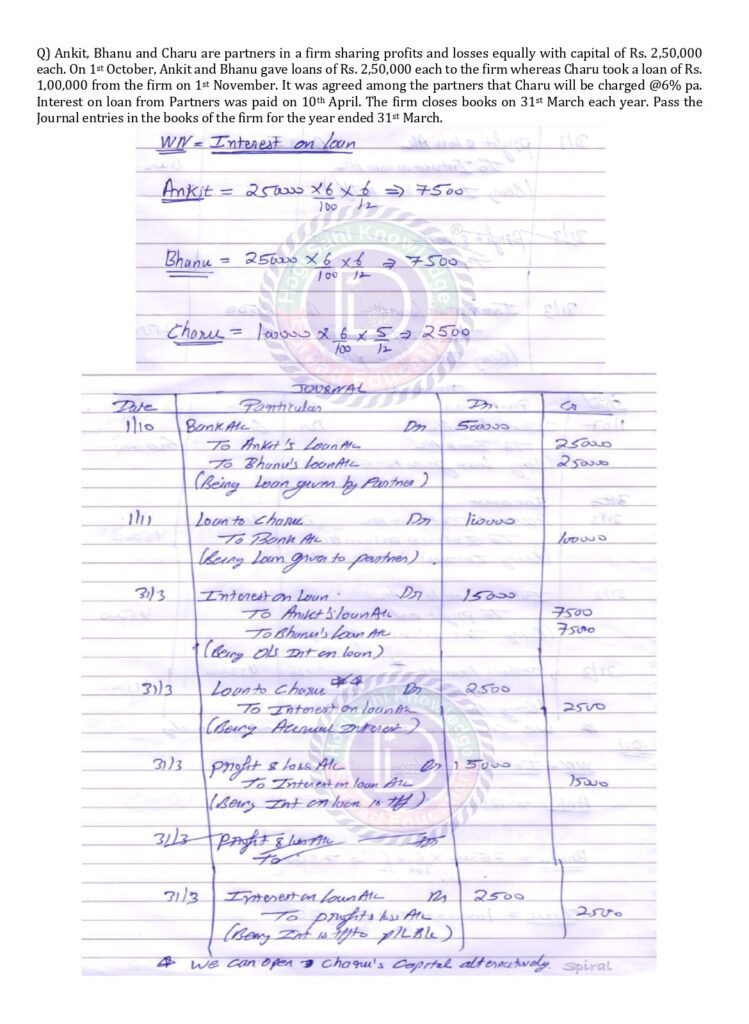 Q) Ankit, Bhanu and Charu are partners in a firm sharing profits and losses equally with capital of Rs. 2,50,000
each. On 1st October, Ankit and Bhanu gave loans of Rs. 2,50,000 each to the firm whereas Charu took a loan of Rs.
1,00,000 from the firm on 1st November. It was agreed among the partners that Charu will be charged @6% pa.
Interest on loan from Partners was paid on 10th April. The firm closes books on 31st March each year. Pass the
Journal entries in the books of the firm for the year ended 31st March.
WN = Interest on loan
Ankit = 250000 × 6/100 × 6/12 ⇒ 7500
Bhanu = 250000 × 6/100 × 6/12 ⇒ 7500
Charu = 100000 × 6/100 × 5/12 ⇒ 2500
JOURNAL
Date Particulars Dr. Cr
1/10 Bank A/c Dr 500000
To Ankit's Loan A/c 250000
To Bhanu's loan A/c 250000
(Being Loan given by Partner)
1/11 Loan to Charu Dr 100000
To Bank A/c 100000
(Being Loan given to partner)
31/3 Interest on Loan Dr 15000
To Ankit's loan A/c 7500
To Bhanu's loan A/c 7500
(Being O/s Int on loan)
31/3 Loan to Charu Dr 2500
To Interest on loan A/c 2500
(Being Accrued Interest)
31/3 Profit & loss A/c Dr 15000
To Interest on loan A/c 15000
(Being Int on loan is tff)
31/3 Profit & loss A/c Dr
To
31/3 Interest on loan A/c Dr 2500
To profit & loss A/c 2500
(Being Int is tff to P/L A/c)
* We can open Charu's Capital alternatively. spiral